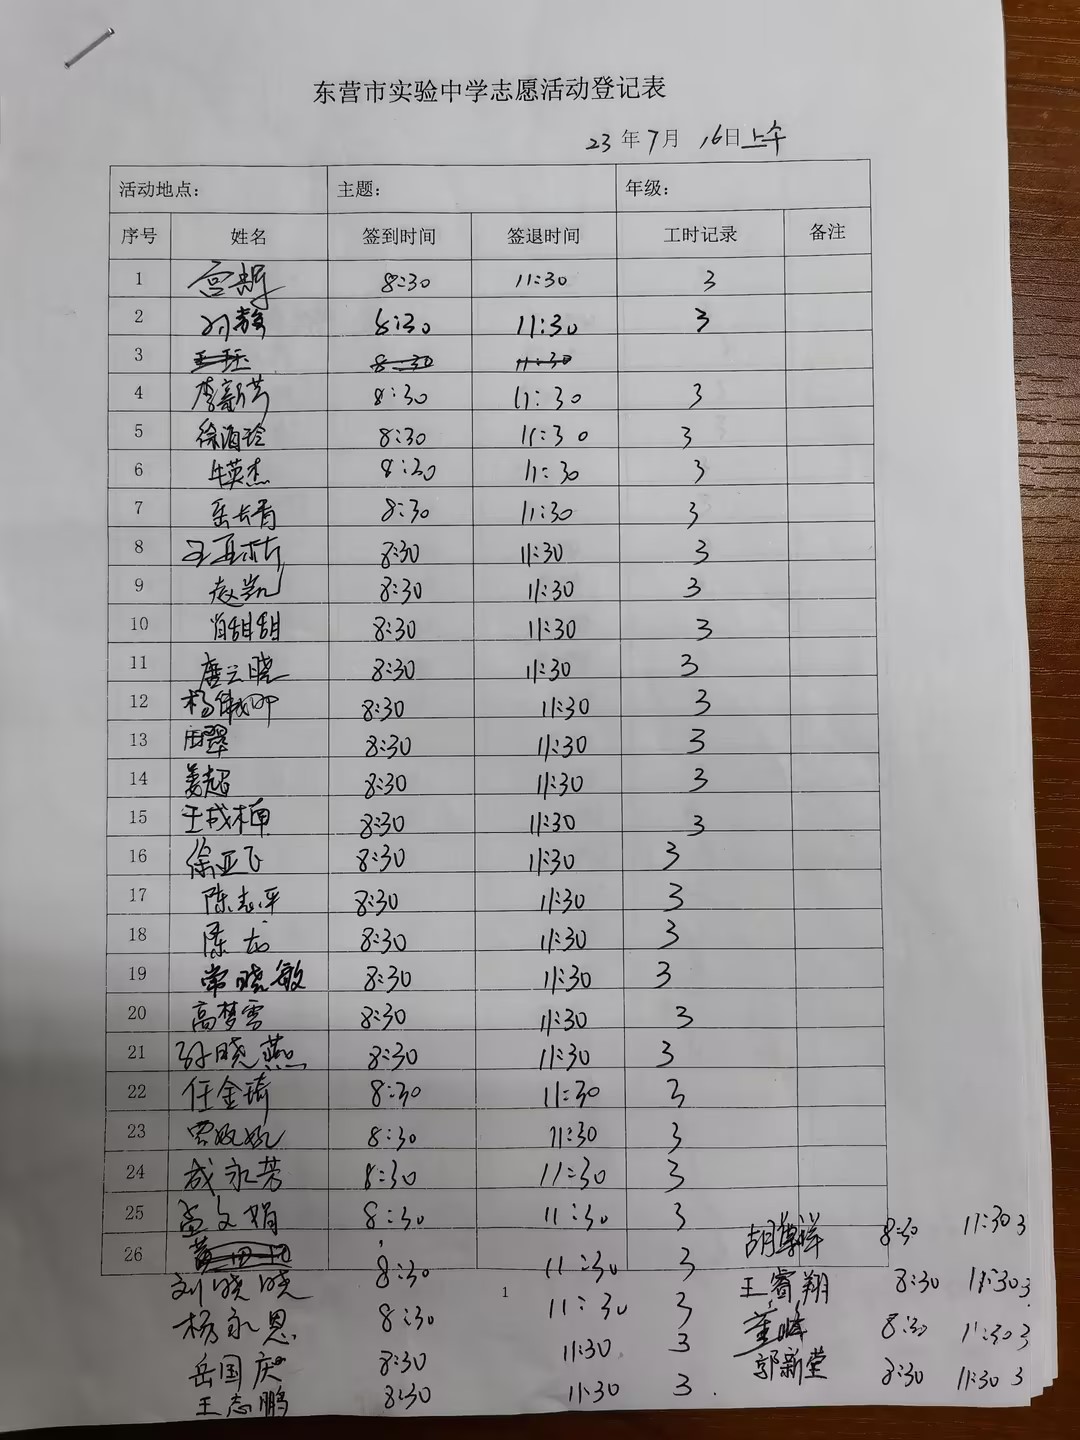 东营市实验中学志愿活动登记表
23年7月16日上午
活动地点: 主题: 年级:
序号 姓名 签到时间 签退时间 工时记录 备注
1 8:30 11:30 3
2 8:30 11:30 3
3 王珏 8:30 11:30
4 李新芳 8:30 11:30 3
5 徐酒玲 8:30 11:30 3
6 牛英杰 8:30 11:30 3
7 岳长青 8:30 11:30 3
8 8:30 11:30 3
9 赵凯 8:30 11:30 3
10 肖甜甜 8:30 11:30 3
11 唐云晓 8:30 11:30 3
12 8:30 11:30 3
13 田翠 8:30 11:30 3
14 姜超 8:30 11:30 3
15 8:30 11:30 3
16 徐亚飞 8:30 11:30 3
17 陈志平 8:30 11:30 3
18 陈龙 8:30 11:30 3
19 常晓敏 8:30 11:30 3
20 高梦雪 8:30 11:30 3
21 孙晓燕 8:30 11:30 3
22 任金琦 8:30 11:30 3
23 8:30 11:30 3
24 成永芳 8:30 11:30 3
25 孟文娟 8:30 11:30 3 胡 祥 8:30 11:30 3
26
刘晓晓 8:30 11:30 3 王睿翔 8:30 11:30 3
1
杨永恩 8:30 11:30 3 董峰 8:30 11:30 3
岳国庆 8:30 11:30 3 郭新堂 8:30 11:30 3
王志鹏 8:30 11:30 3